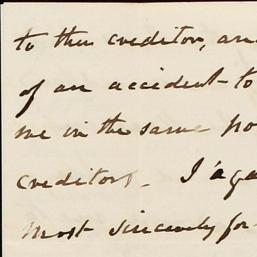 to this creditor, an
of an accident to
me in the same po
creditors. I aga
most sincerely for